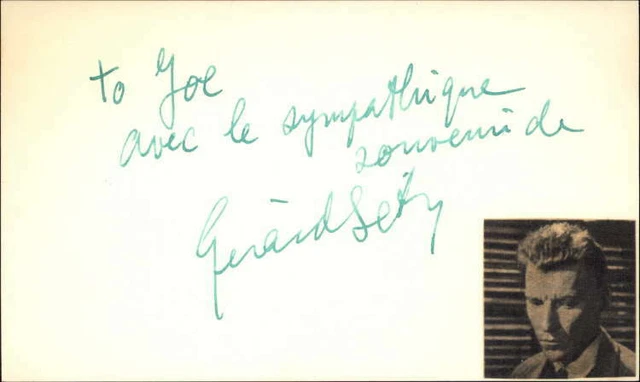 to Joe
avec le sympathique
souvenir de
Gérard Séty